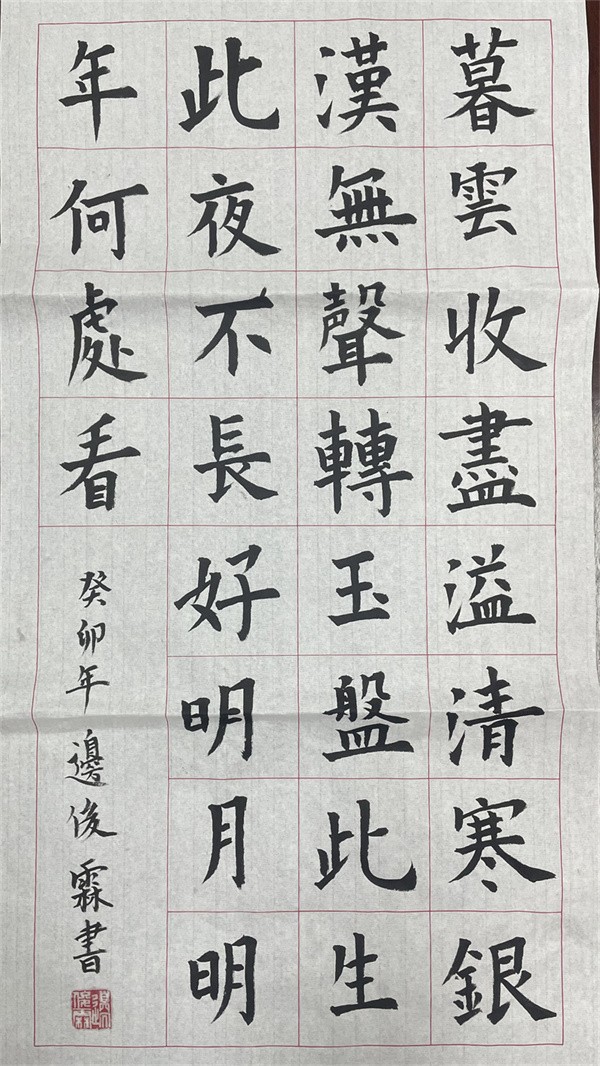 暮雲收盡溢清寒銀
漢無聲轉玉盤此生
此夜不長好明月明
年何處看
癸卯年邊俊霖書